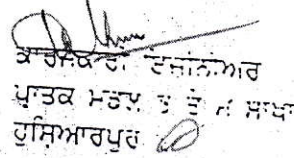 ਕਾਰਜਕਾਰੀ ਇੰਜੀਨੀਅਰ
ਪ੍ਰਾਂਤਕ ਮੰਡਲ ਭ ਤੇ ਮ ਸ਼ਾਖਾ
ਹੁਸ਼ਿਆਰਪੁਰ